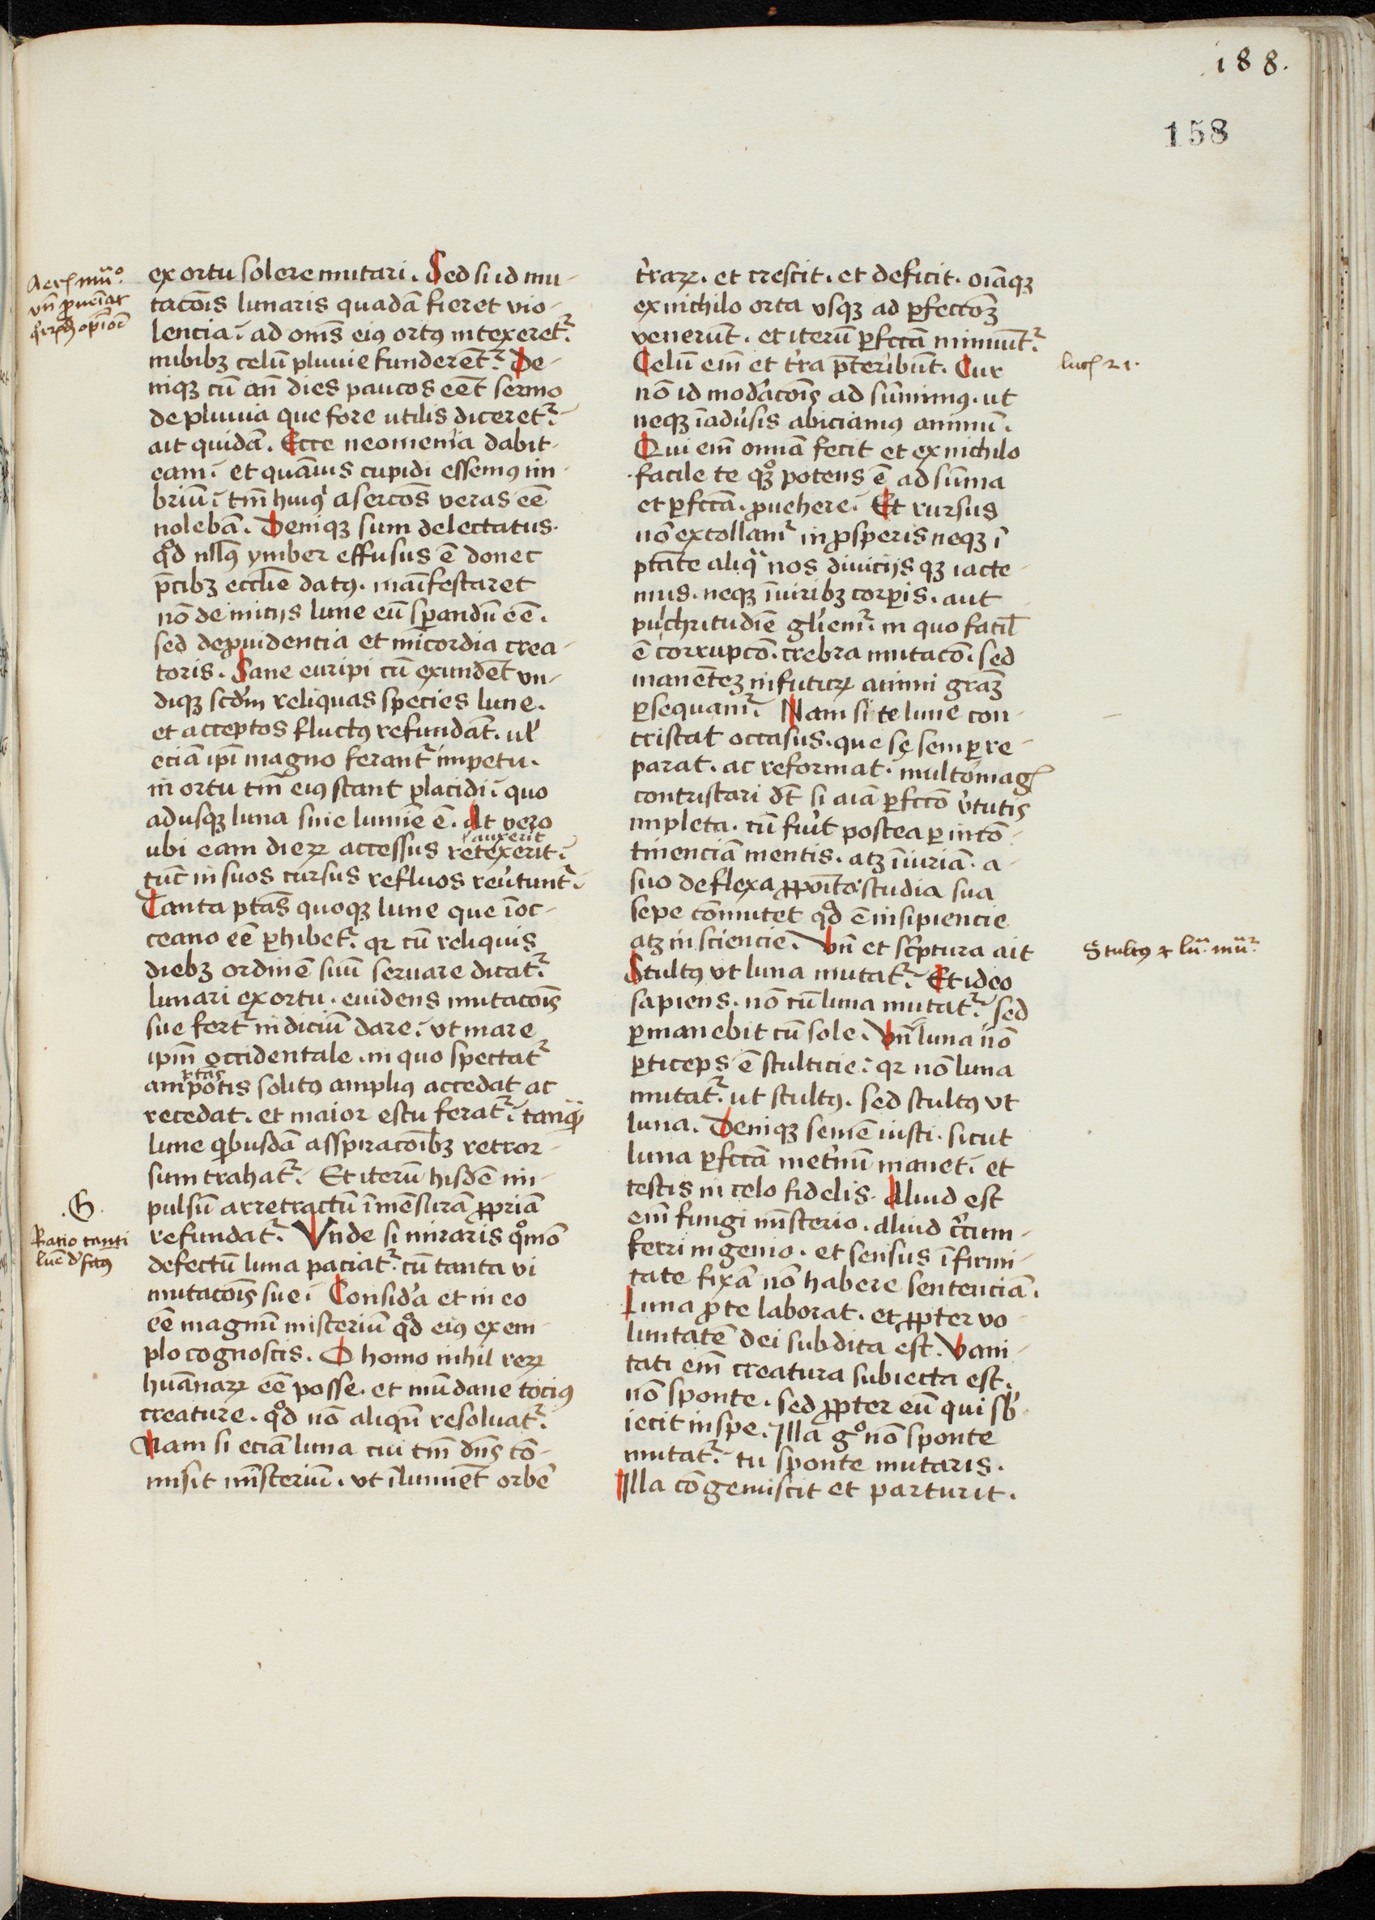 188.
158
ex ortu solere mutari. Sed si id mu-
tacōis lunaris quadā fieret vio-
lencia: ad om̄s eiꝰ ortꝰ intexeretᷣ
nubibꝫ celū pluuie funderentᷣ. De-
niqꝫ cū an̄ dies paucos eēt sermo
de pluuia que fore utilis diceretᷣ.
ait quidā. Ecce neomenia dabit
eam: et quāuis cupidi essemꝰ im-
brium: tm̄ huiꝰ asercōs veras eē
nolebā. Deniqꝫ sum delectatus.
qd̄ nllꝰ ymber effusus ē donec
p̄cibꝫ eccl̄ie datꝰ. maīfestaret
nō de inicijs lune eū sꝑandū eē.
sed de ꝓuidencia et mīcordia crea-
toris. Sane euripi cū exundēt vn-
diqꝫ scd̄m reliquas species lune.
et acceptos fluctꝰ refundāt. ul̓
eciā ip̄i magno ferantᷣ impetu.
in ortu tm̄ eiꝰ stant placidi: quo
adusqꝫ luna sine lumīe ē. At vero
auxerit
ubi eam dieꝝ accessus retexerit:
tūc in suos cursus refluos reu̓tuntᷣ.
Tanta ptās̄ quoqꝫ lune que ī oc-
ceano eē ꝑhibetᷣ. qr cū reliquis
diebꝫ ordinē suū seruare dicatᷣ.
lunari exortu. euidens mutacōis
sue fertᷣ indiciū dare: vt mare
ip̄m occidentale. in quo spectatᷣ
ptās
ampotis solitꝰ ampliꝰ accedat ac
recedat. et maior estu feratᷣ. tanqꝫ̄
lune qͥbusdā asspiracōibꝫ retror-
sum trahatᷣ. Et iterū hisdē im-
pulsū ac retractū ī mēsurā ꝓpriā
refundatᷣ. Vnde si miraris qͦmō
defectū luna paciatᷣ. cū tanta vi
mutacōis sue: Consid̓a et in eo
eē magnū misteriū qd̄ eiꝰ exem-
plo cognoscis. O homo nihil reꝝ
huānaꝝ eē posse. et mūdane tociꝰ
creature. qd̄ nō aliqn̄ resoluatᷣ.
Nam si eciā luna cui tm̄ dn̄s cō-
misit mīsteriū. vt illumīet orbē
t̓raꝝ. et crescit. et deficit. oīaqꝫ
ex nichilo orta vsqꝫ ad ꝑfectōꝫ
venerūt. et iterū ꝑfcā minuūtᷣ.
Celū em̄ et t̓ra p̄teribūt. Cur
nō id mod̓acōis ad sūmimꝰ. ut
neqꝫ ī adu̓sis abiciamꝰ animū.
Qui em̄ omnia fecit et ex nichilo
facile te qꝫ potens ē ad sūma
et ꝑfcā. ꝓuehere. Et rursus
nō extollamᷣ in ꝓsperis neqꝫ ī
ptāte aliqͣ nos diuicijs qꝫ iacte-
mus. neqꝫ ī viribꝫ corꝑis. aut
pulchritudīe gl̓iemᷣ. in quo facil̓
ē corrupcō. crebra mutacō. sed
manētēꝫ in futuꝝ animi grāꝫ
ꝑsequamᷣ. Nam si te lune con-
tristat occasus. que se semꝑ re-
parat. ac reformat. multomag̓
contristari dꝫ si aīa ꝑfcō v̓tutis
impleta. cū fiu̓t postea ꝑ incō-
tinenciā mentis. atqꝫ ī iuriā. a
suo deflexa ꝓpōito studia sua
sepe cōmutet qd̄ ē insipiencie
atqꝫ insciencie. Vn̄ et sc̓ptura ait
Stultꝰ vt luna mutatᷣ. Et ideo
sapiens. nō cū luna mutatᷣ. sed
ꝑmanebit cū sole. Vn̄ luna nō
ꝑticeps ē stulticie: qr nō luna
mutatᷣ. ut stultꝰ. sed stultꝰ vt
luna. Deniqꝫ semē iusti. sicut
luna ꝑfcā in et̓nū manet. et
testis in celo fidelis. Aliud est
em̄ fungi mīsterio. aliud c̓cum-
ferri ingenio. et sensus īfirmi-
tate fixā nō habere sentenciā.
Luna ꝓ te laborat. et ꝓpter vo-
luntatē dei subdita est. Vani-
tati em̄ creatura subiecta est.
nō sponte. sed ꝓpter eū qui sb̓
iecit in spe. Illa gͦ nō sponte
mutatᷣ. tu sponte mutaris.
Illa cōgemiscit et parturit.
.G.
Ratio tanti
luc̄ 21.
Stultꝰ